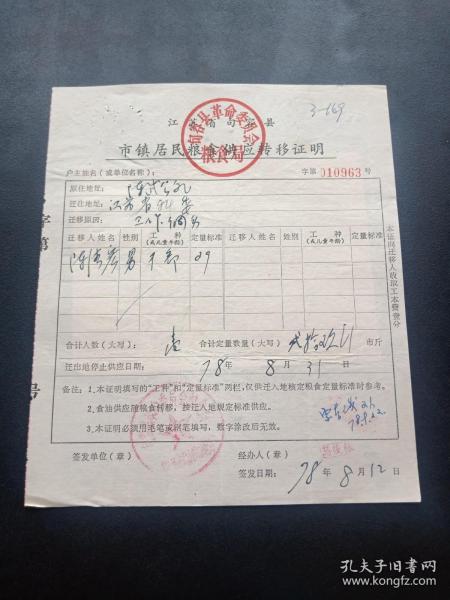 3-169
江苏省句容县
句容县革命委员会
粮食局
市镇居民粮食供应转移证明
户主姓名(或单位名称): 字第 010963 号
原住地址:
迁往地址: 江苏省
迁移原因: 工作调动
迁移人姓名 性别 工种(或儿童年龄) 定量标准 迁移人姓名 性别 工种(或儿童年龄) 定量标准
男 干部 29
合计人数(大写): 壹 合计定量数量(大写) 贰拾玖 市斤
迁出地停止供应日期: 78 年 8 月 31 日
备注:1.本证明填写的“工种”和“定量标准”两栏,仅供迁入地核定粮食定量标准时参考。
2.食油供应随粮食转移,按迁入地规定标准供应。
3.本证明必须用毛笔或钢笔填写,数字涂改后无效。
签发单位(章) 经办人(章)
签发日期: 78 年 8 月 12 日
本证向迁移人收取工本费壹分
字第
号
孔夫子旧书网
www.kongfz.com